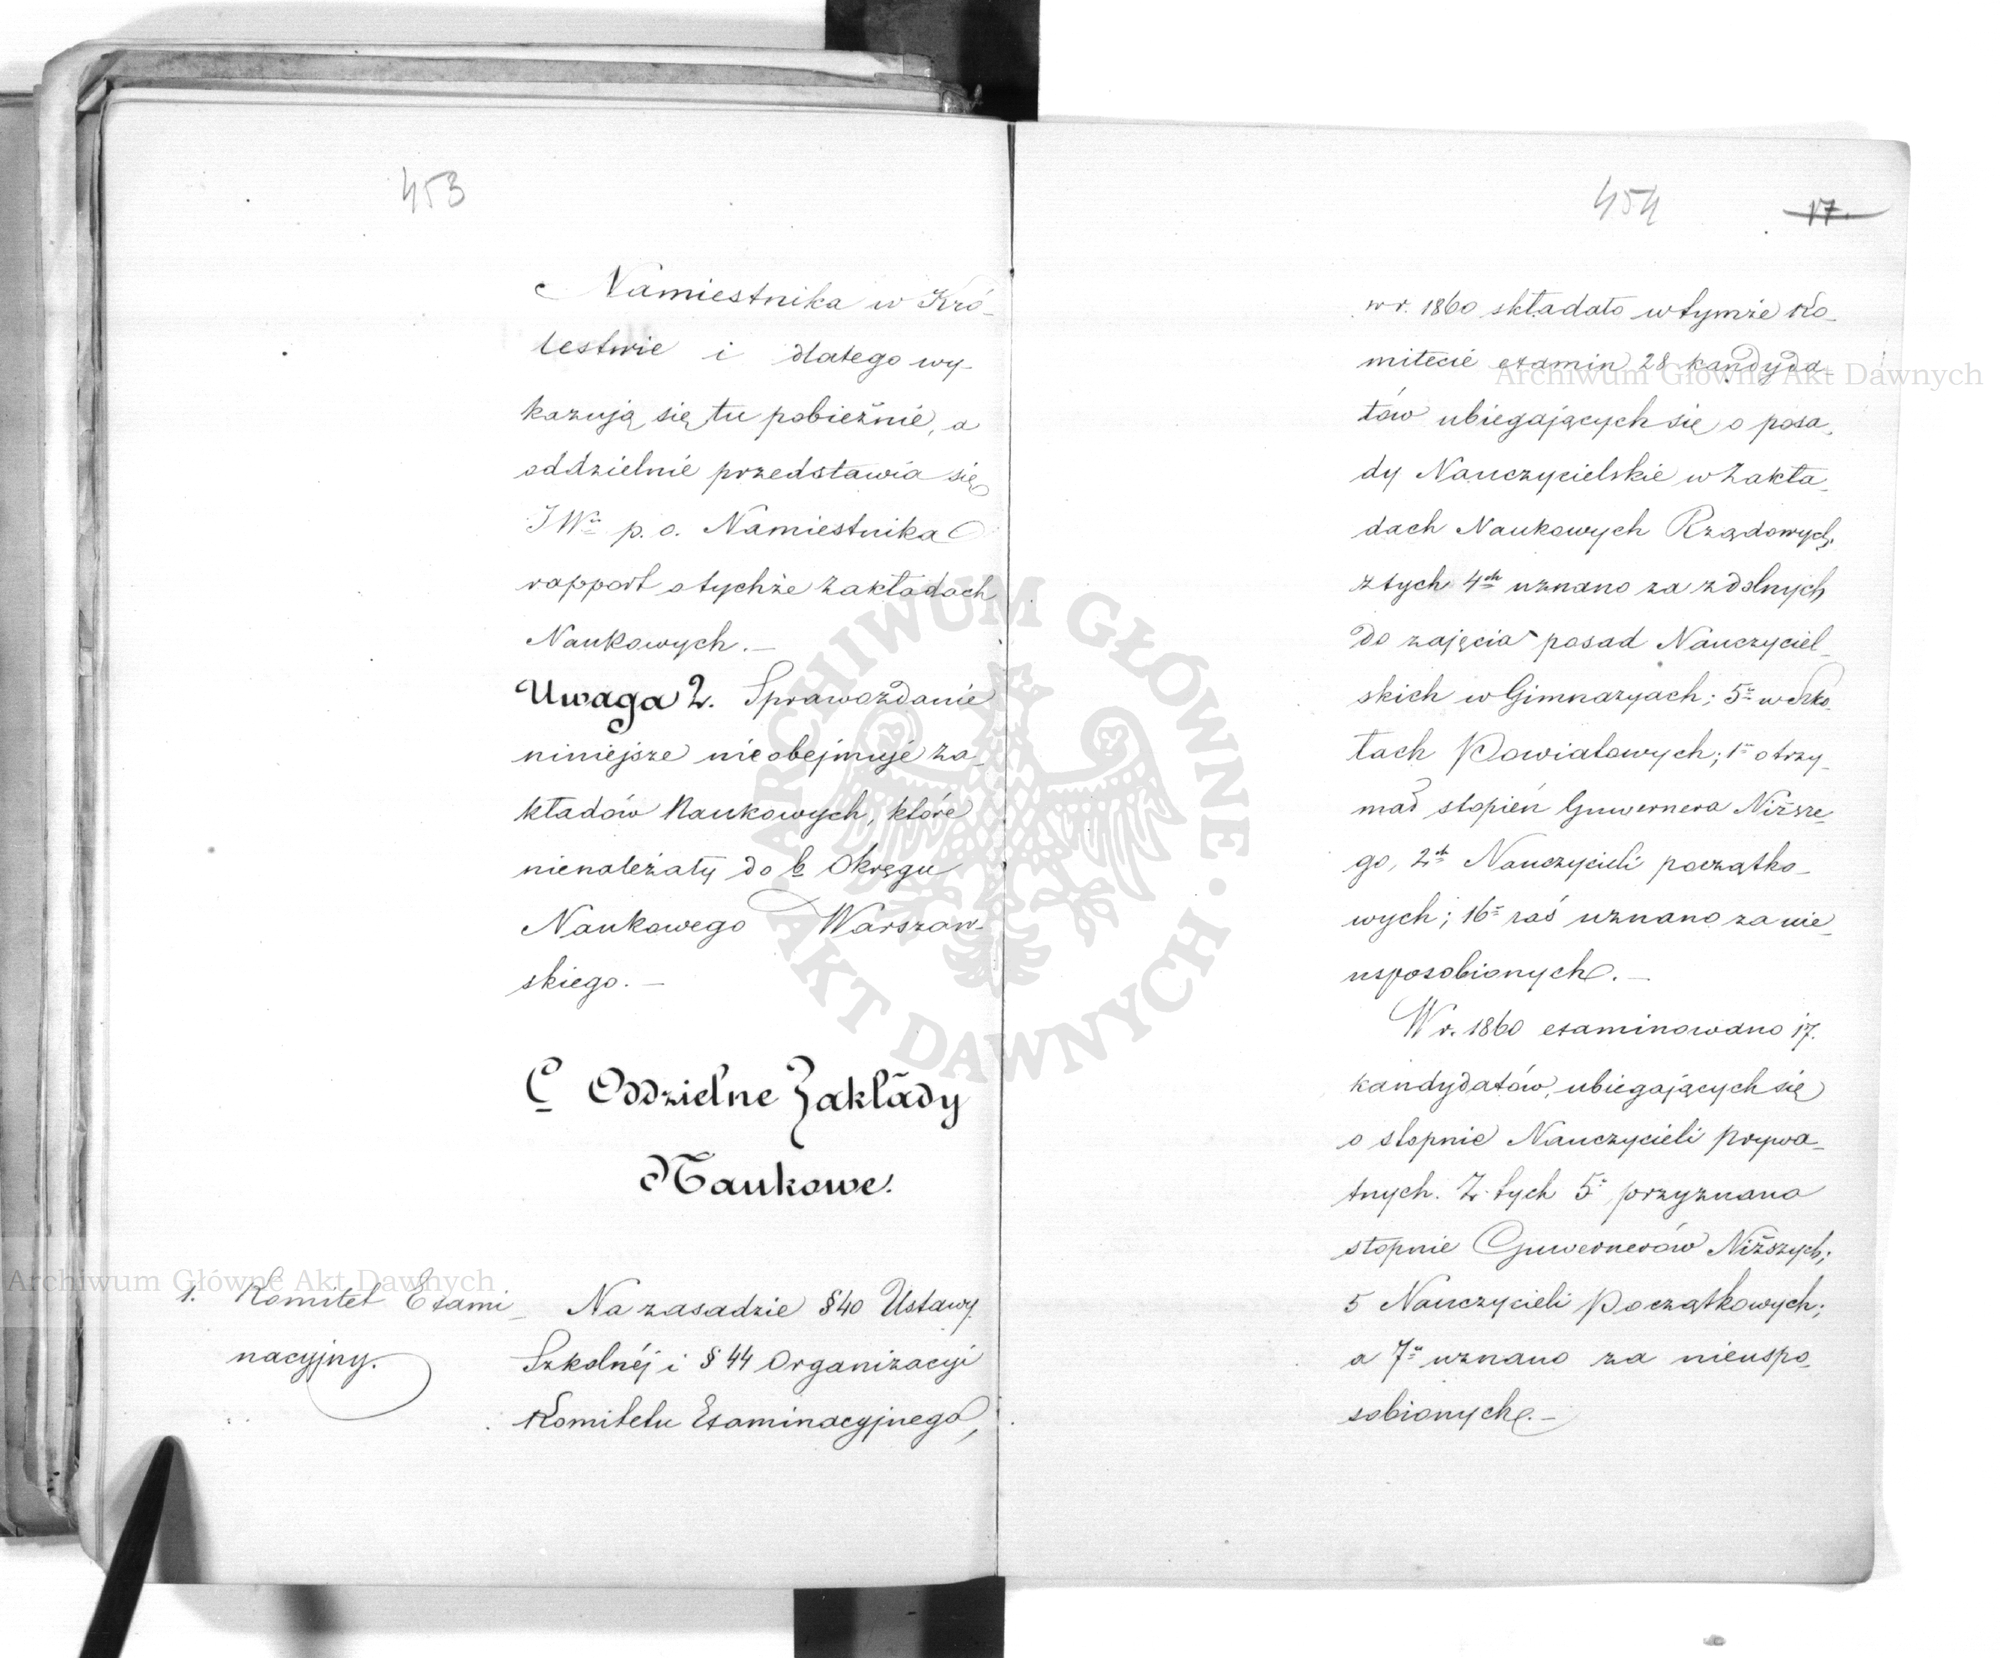 453
Namiestnika w Kró-
lestwie i dlatego wy-
kazują się tu pobieżnie, a
oddzielnie przedstawia się
JWu p. o. Namiestnika
rapport o tychże zakładach
Naukowych. —
Uwaga 2. Sprawozdanie
niniejsze nie obejmuje za-
kładów Naukowych, które
nienależały do b. Okręgu
Naukowego Warszaw-
skiego. —
C Oddzielne Zakłady
Naukowe.
1. Komitet Exami-
nacyjny.
Na zasadzie § 40 Ustawy
Szkolnéj i § 44 Organizacyi
Komitetu Examinacyjnego,
454
17.
w r. 1860 składało w tymże Ko-
mitecie examin 28 kandyda-
tów ubiegających się o posa-
dy Nauczycielskie w Zakła-
dach Naukowych Rządowych,
z tych 4ch uznano za zdolnych
do zajęcia posad Nauczyciel-
skich w Gimnazyach; 5u w Szko-
łach Powiatowych; 1n otrzy-
mał stopień Guwernera Niższe-
go, 2ch Nauczycieli początko-
wych; 16u zaś uznano za nie-
usposobionych. —
W r. 1860 examinowano 17.
kandydatów, ubiegających się
o stopnie Nauczycieli prywa-
tnych. Z tych 5u przyznano
stopnie Guwernerów Niższych;
5 Nauczycieli Początkowych;
a 7u uznano za nieuspo-
sobionych. —
Archiwum Główne Akt Dawnych
Archiwum Główne Akt Dawnych
ARCHIWUM GŁÓWNE · AKT DAWNYCH ·